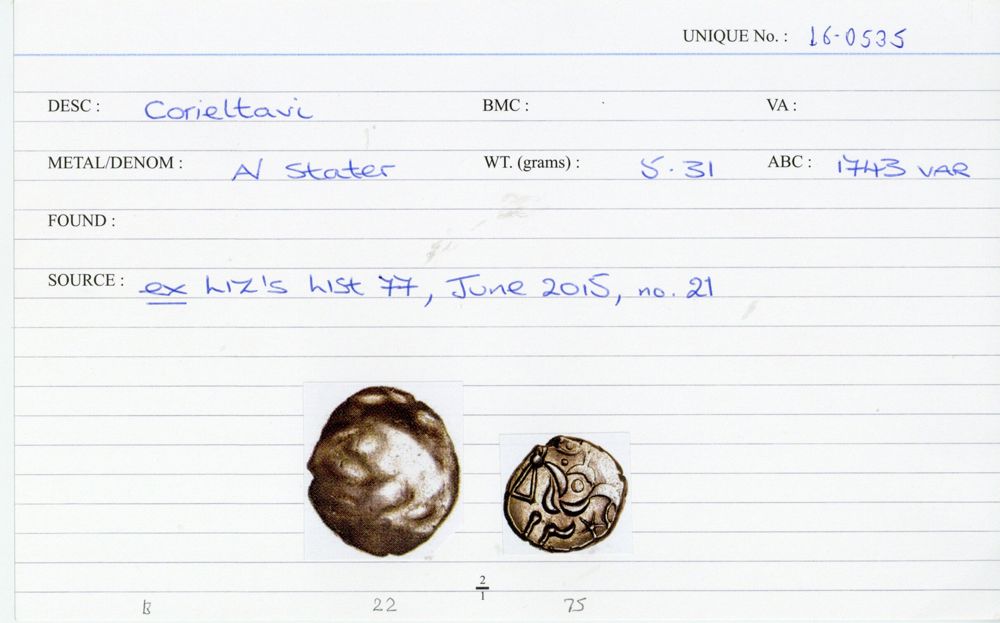 UNIQUE No. : 16-0535
DESC : Corieltavi BMC : VA :
METAL/DENOM : N Stater WT. (grams) : 5.31 ABC : 1743 VAR
FOUND :
SOURCE : ex Liz's List 77, June 2015, no. 21
2
1
B 22 75